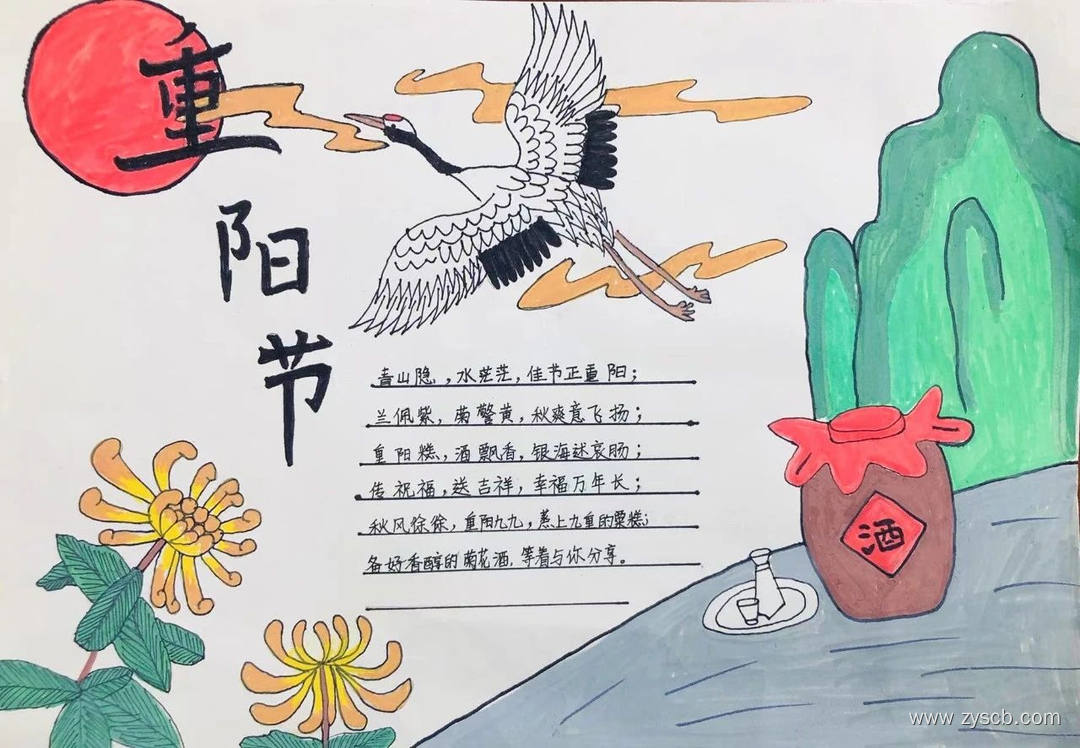 重阳节
青山隐，水茫茫，佳节正重阳；
兰佩紫，菊簪黄，秋爽意飞扬；
重阳糕，酒飘香，银海述哀肠；
传祝福，送吉祥，幸福万年长；
秋风徐徐，重阳九九，蒸上九重的粟糕；
备好香醇的菊花酒，等着与你分享。
酒
www.zyscb.com